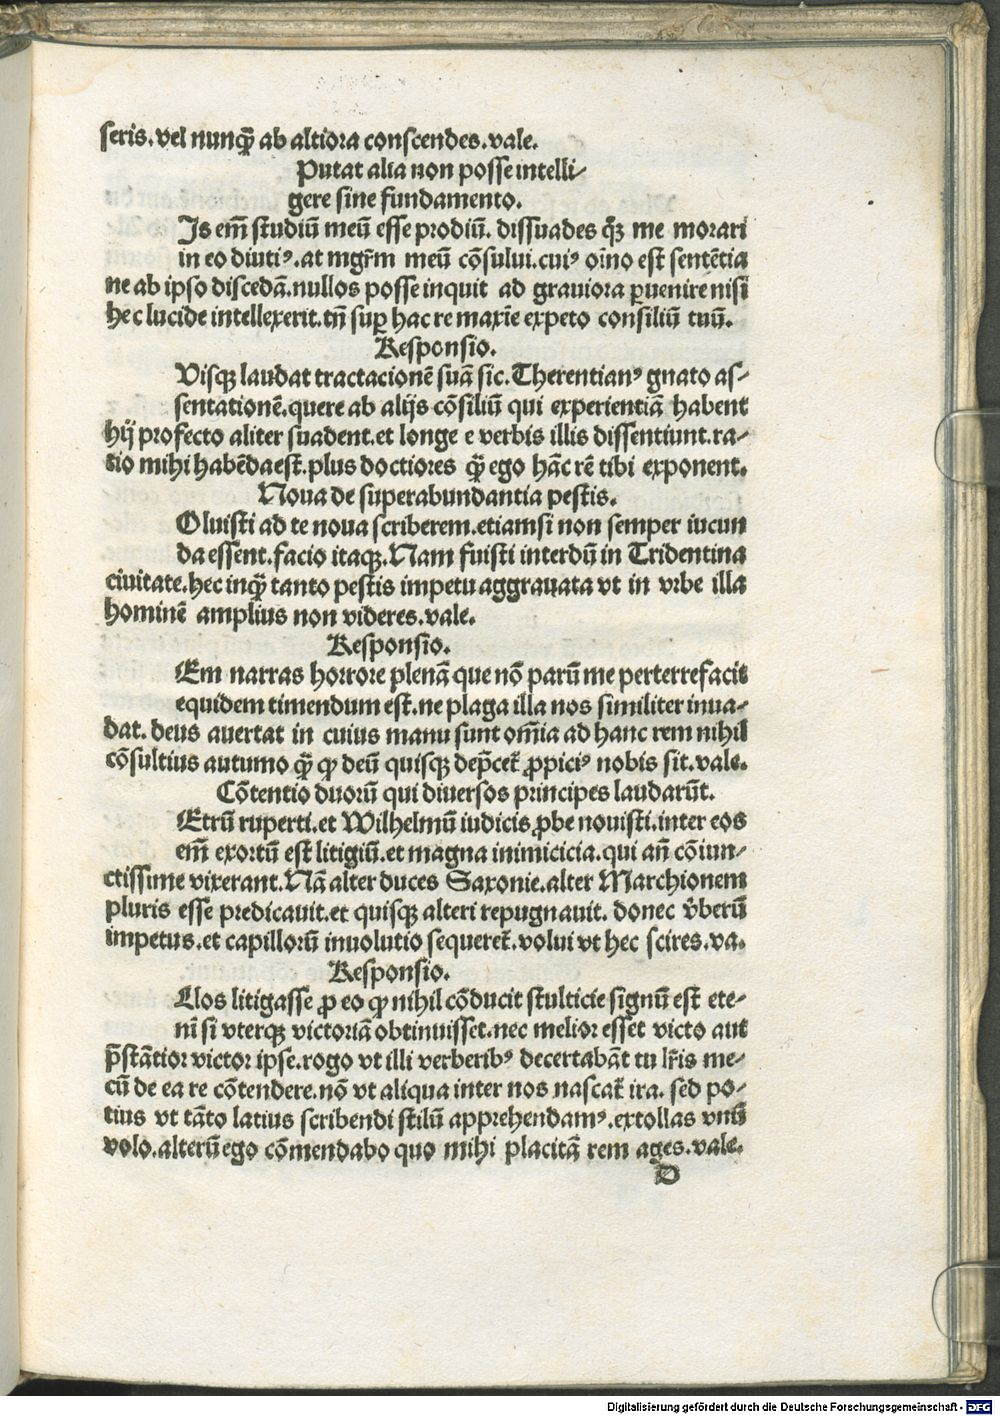 seris.vel nunq̃ ab altiora conscendes.vale.
Putat alia non posse intelli⸗
gere sine fundamento.
Is em̃ studiũ meũ esse prodiũ. dissuades q̃ꝫ me morari
in eo diutiꝰ.at mgr̃m meũ cõsului.cuiꝰ oĩno est sentẽtia
ne ab ipso discedã.nullos posse inquit ad grauiora ꝑuenire nisi
hec lucide intellexerit.tñ suꝑ hac re maxĩe expeto consiliũ tuũ.
Responsio.
Uisqꝫ laudat tractacionẽ suã sic.Therentianꝰ gnato as⸗
sentationẽ.quere ab alijs cõsiliũ qui experientiã habent
hij profecto aliter suadent.et longe e verbis illis dissentiunt.ra⸗
tio mihi habẽda est.plus doctiores q̃ ego hãc rẽ tibi exponent.
Noua de superabundantia pestis.
Oluisti ad te noua scriberem.etiamsi non semper iucun
da essent.facio itaqꝫ.Nam fuisti interdũ in Tridentina
ciuitate.hec inq̃ tanto pestis impetu aggrauata vt in vrbe illa
hominẽ amplius non videres.vale.
Responsio.
Em narras horrore plenã que nõ parũ me perterrefacit
equidem timendum est.ne plaga illa nos similiter inua⸗
dat. deus auertat in cuius manu sunt om̃ia ad hanc rem nihil
cõsultius autumo q̃ ꝙ deũ quisqꝫ dep̃cet̃ ꝓpiciꝰ nobis sit.vale.
Cõtentio duorũ qui diuersos principes laudarũt.
Etrũ ruperti.et Wilhelmũ iudicis ꝓbe nouisti.inter eos
em̃ exortũ est litigiũ.et magna inimicicia.qui añ cõiun⸗
ctissime vixerant.Nã alter duces Saxonie.alter Marchionem
pluris esse predicauit.et quisqꝫ alteri repugnauit. donec v̾berũ
impetus.et capillorũ inuolutio sequeret̃.volui vt hec scires.va.
Responsio.
Llos litigasse ꝓ eo ꝙ nihil cõducit stulticie signũ est ete⸗
nĩ si vterqꝫ victoriã obtinuisset.nec melior esset victo aut
p̃stãtior victor ipse.rogo vt illi verberibꝰ decertabãt tu lr̃is me⸗
cũ de ea re cõtendere.nõ vt aliqua inter nos nascat̃ ira. sed po⸗
tius vt tãto latius scribendi stilũ apprehendamꝰ.extollas vnũ
volo.alterũ ego cõmendabo quo mihi placitã rem ages.vale.
D
Digitalisierung gefördert durch die Deutsche Forschungsgemeinschaft - DFG